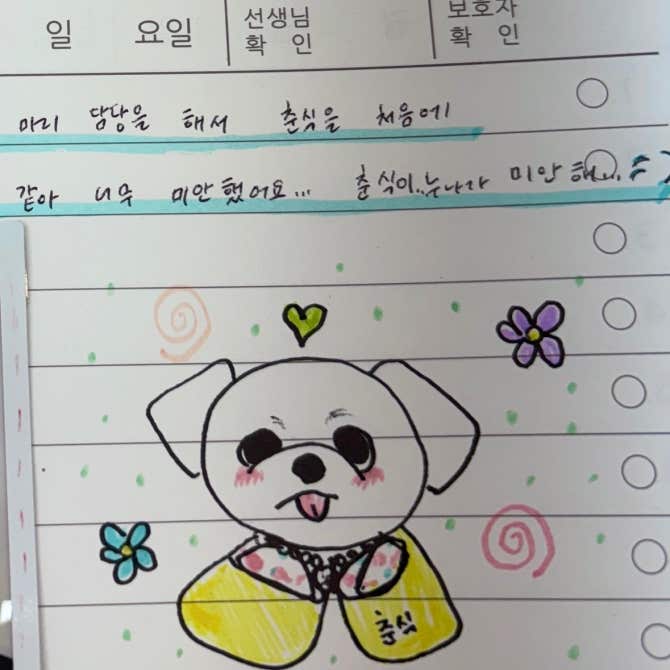 일 요일 선생님 보호자
확 인 확 인
마리 담당을 해서 춘식을 처음에
같아 너무 미안했어요... 춘식이..누나가 미안해..
춘식